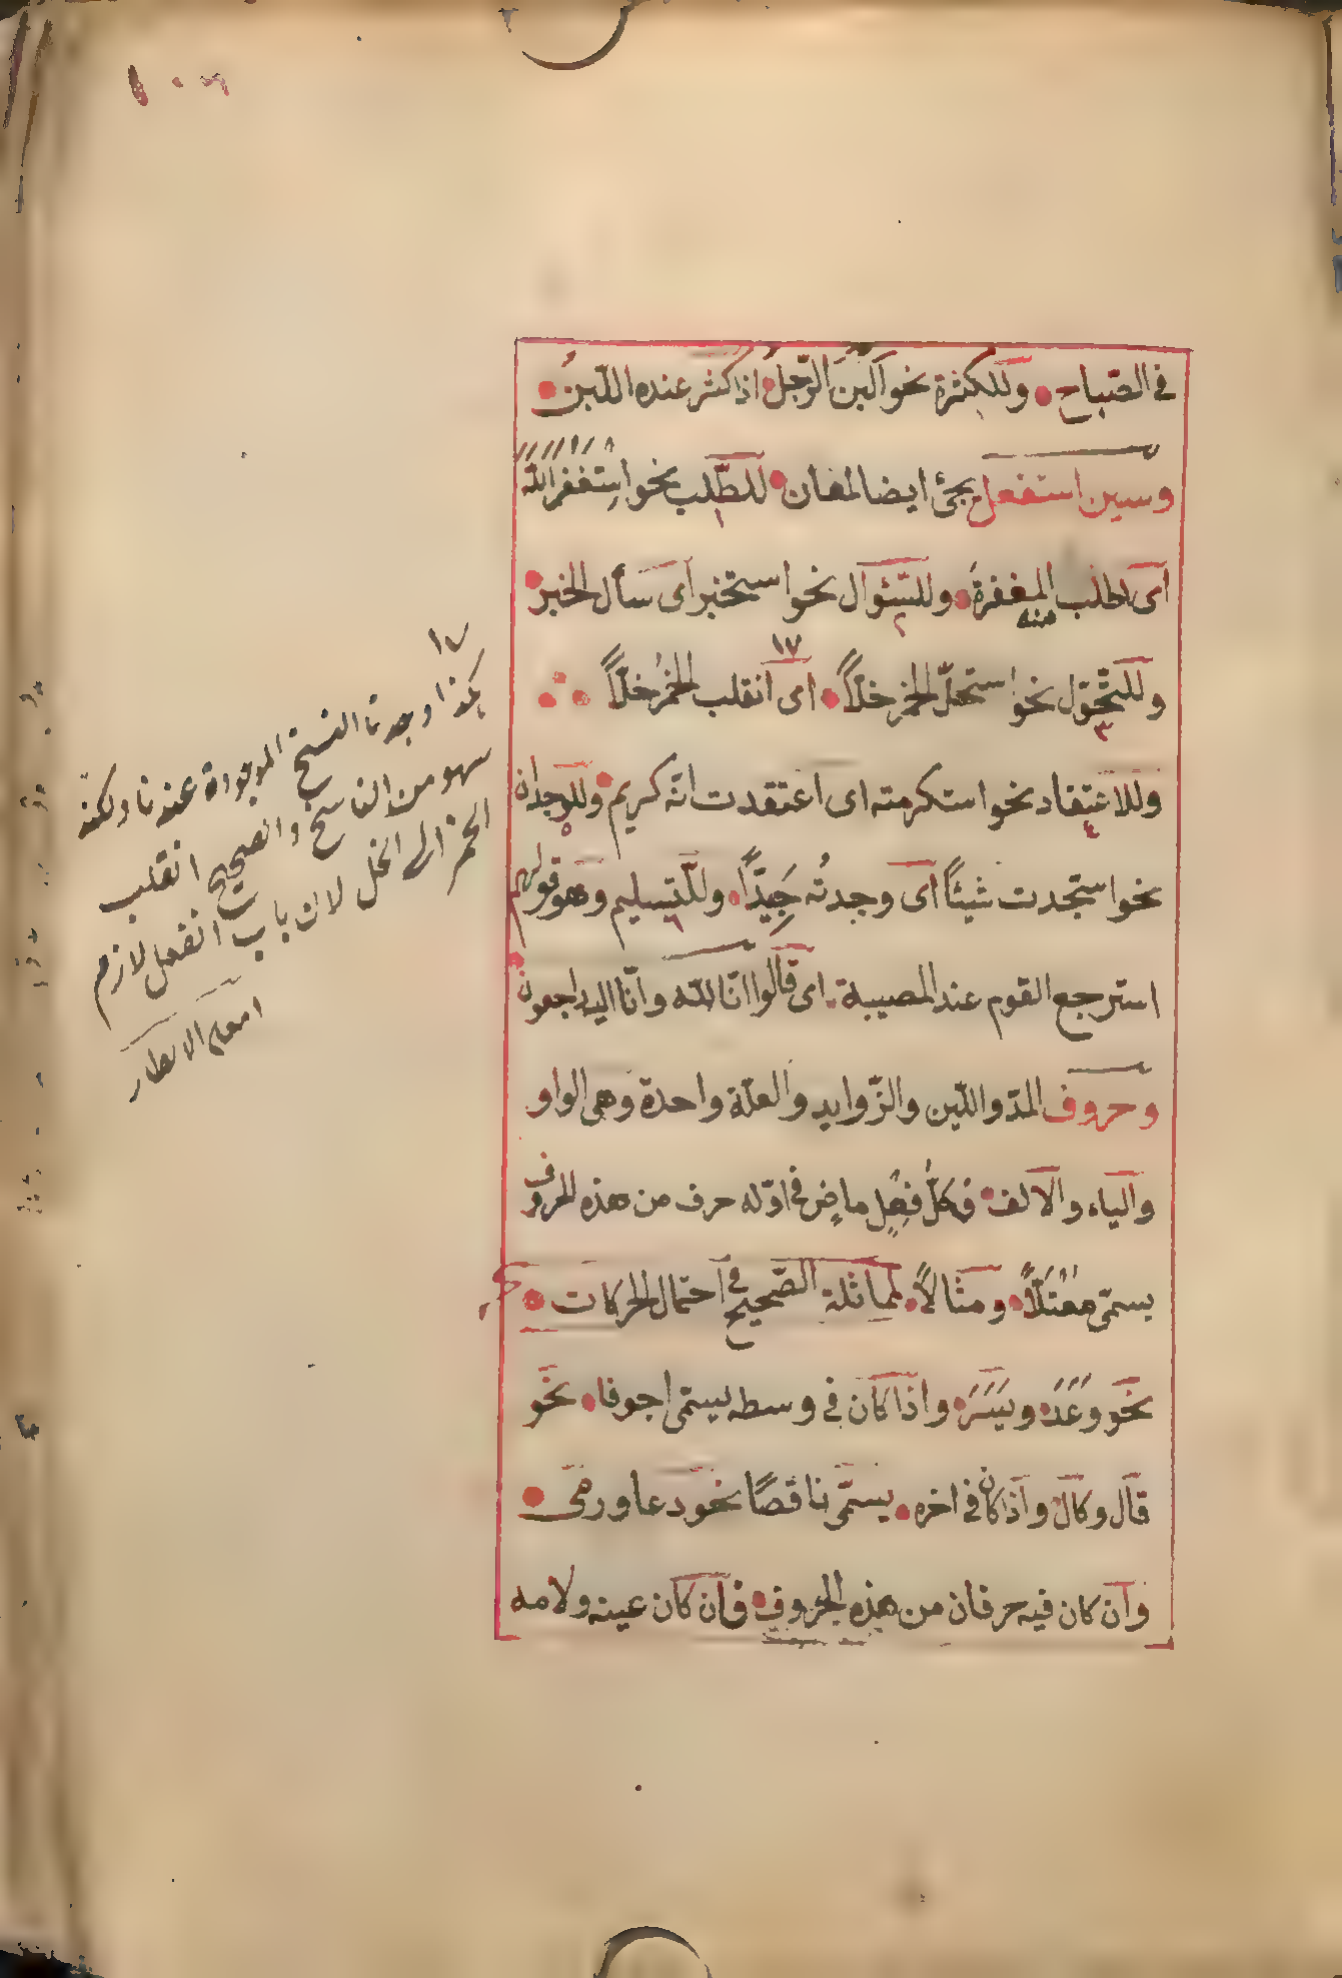 ١٠٦
في الصّباح وللكثرة نحو اَلْبَنَ الرّجلُ اذا كثر عنده اللّبنُ
وسين استفعل يجئ ايضا لمعان للطّلب نحو اِستغفرُ اللّٰه
١
اى اطلب المغفرةَ منه وللسّئوال نحو استخبر اى سأل الخبر
٢
١٧
وللتّحوّل نحو استخلّ الخمر خلّاً اى انقلب الخمرُ خلّاً
٣
وللاعتقاد نحو استكرمته اى اعتقدت انّه كريم وللوجدان
٤ ٥
نحو استجدت شيئاً اى وجدتُه جَيِّدًا وللتّسليم وهو قولهم
٦
استرجع القوم عند المصيبة اى قالوا انّا للّٰه وانّا اليه راجعون
وحروف المدّ واللّين والزّوايد والعلّة واحدة وهى الواو
والياء والالف فكلُّ فِعْلٍ ماضٍ في اوّله حرف من هذه الحروف
يسمّى معتلّاً ومثالاً لمماثلة الصّحيح في احتمال الحركات
نحو وَعَدَ ويَسَرَ واذا كان في وسطه يسمى اجوفا نحو
قال وكال واذا كان في اخره يسمّى ناقصًا نحو دعا ورمى
وان كان فيه حرفان من هذه الحروف فان كان عينه ولامه
١٧
هكذا وجدنا النسخ الموجودة عندنا ولكنّه
سهو من الناسخ والصحيح انقلب
الخمر الى الخل لان باب انفعل لازم